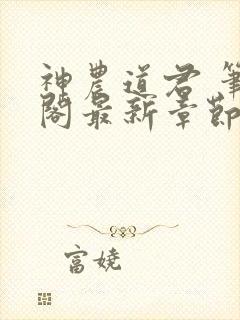 神農道君 筆
閣最新章節
富娆